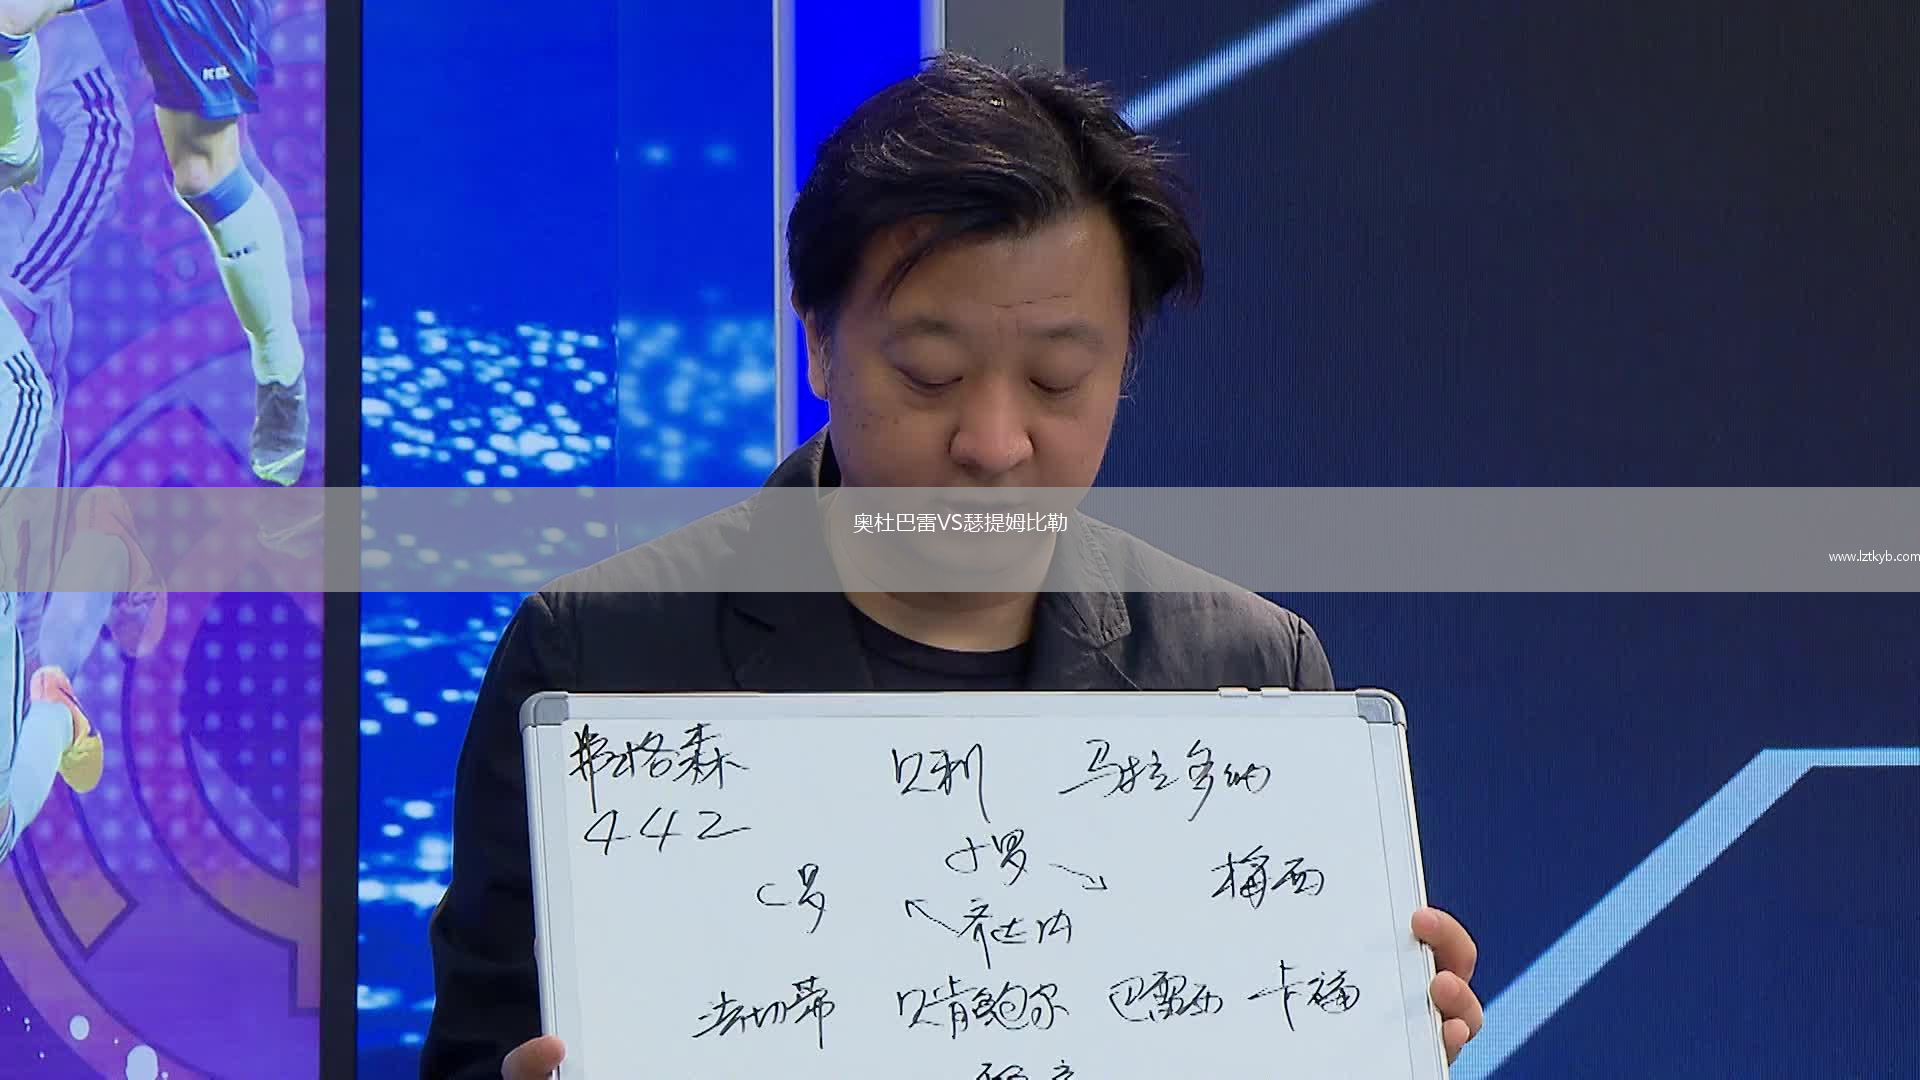 奥杜巴雷VS瑟提姆比勒
www.lztkyb.com
弗格森 贝利 马拉多纳
442
小罗
C罗 梅西
齐达内
法切蒂 贝肯鲍尔 巴雷西 卡福